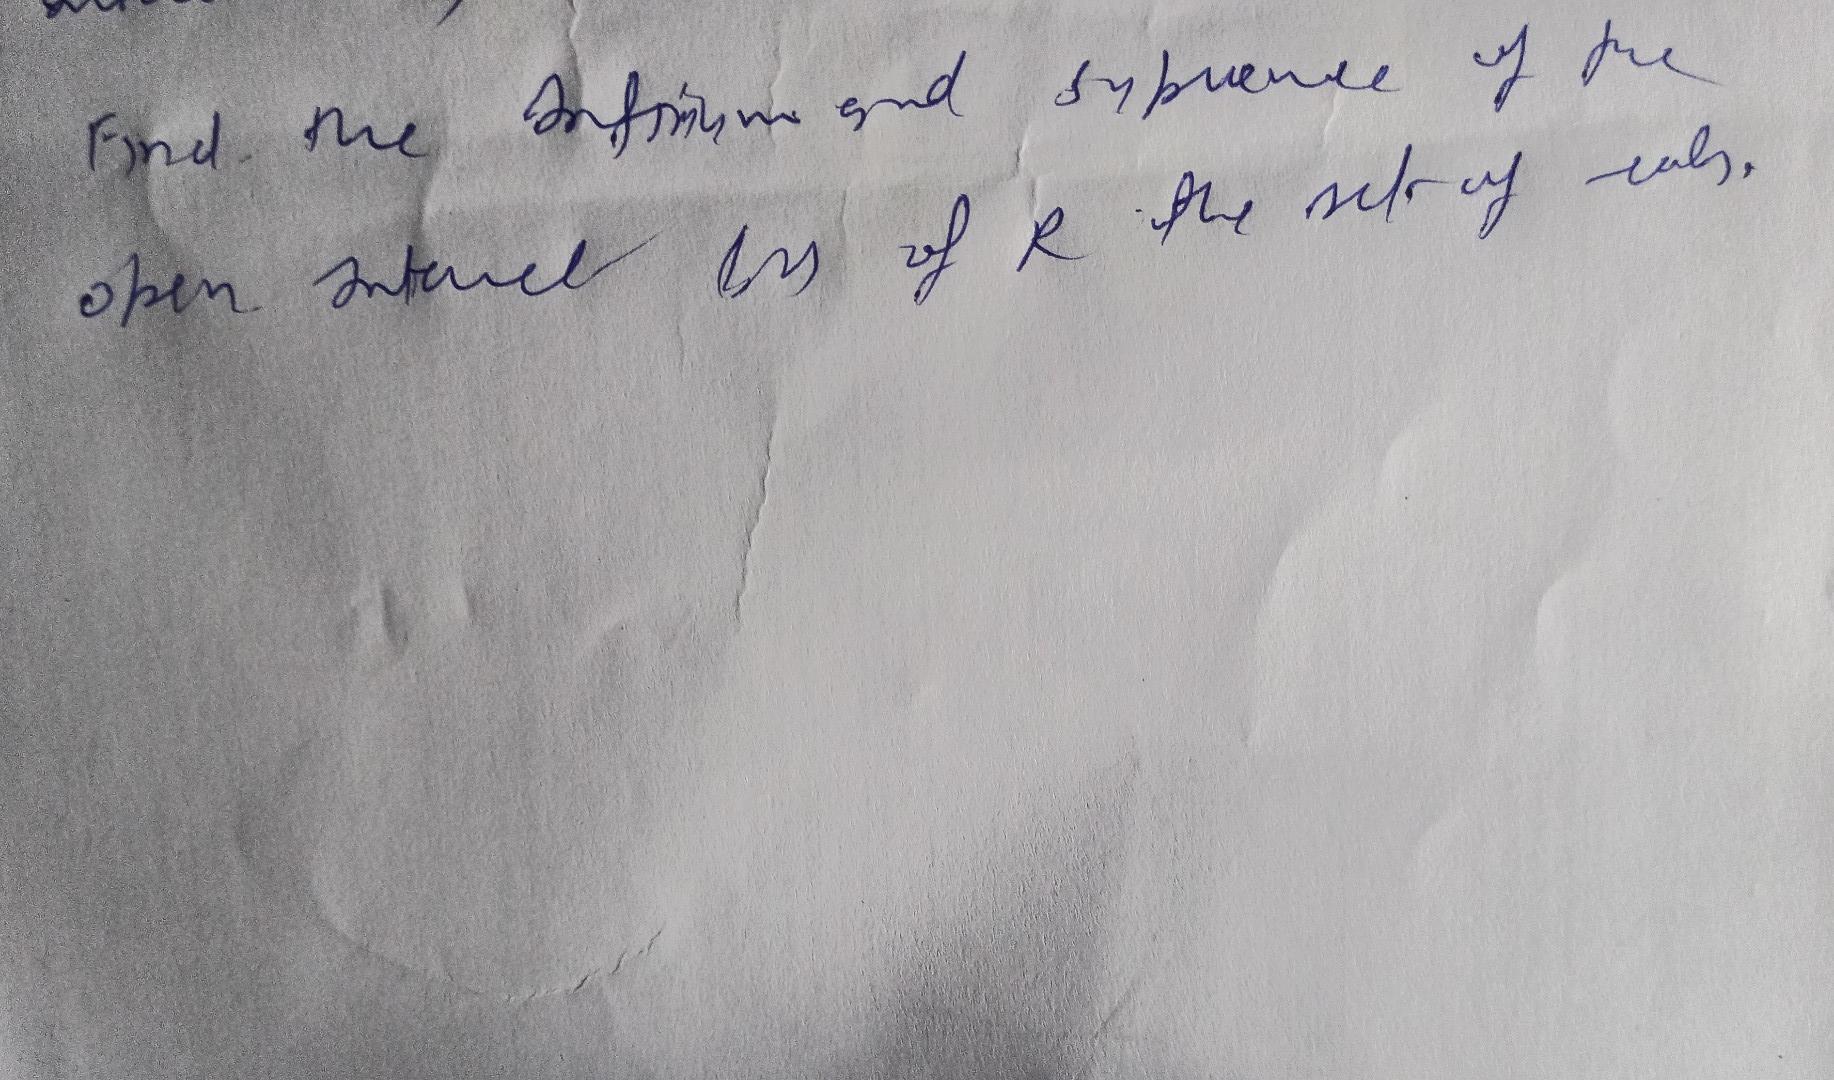 Find the Infimum and supremum of the
open interval of R the set of reals.